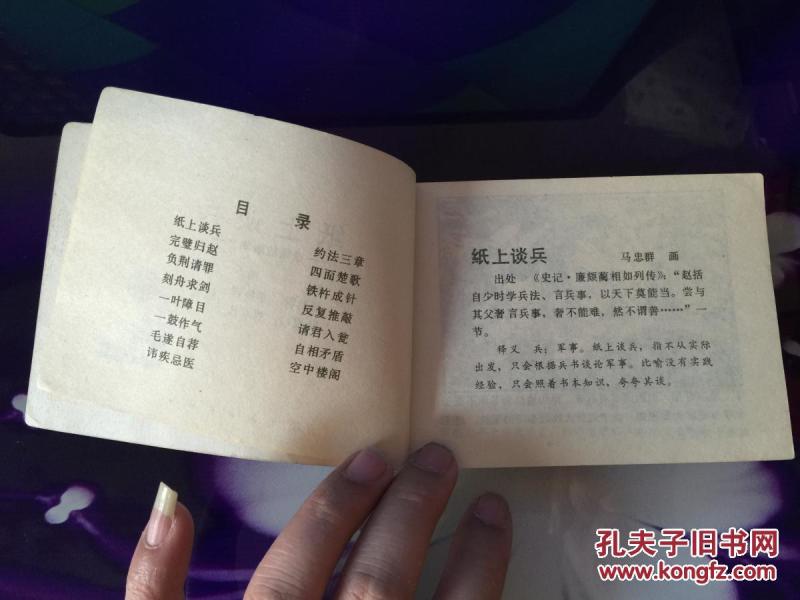 目 录
纸上谈兵
完璧归赵
负荆请罪
刻舟求剑
一叶障目
一鼓作气
毛遂自荐
讳疾忌医
约法三章
四面楚歌
铁杵成针
反复推敲
请君入瓮
自相矛盾
空中楼阁
纸上谈兵 马忠群 画
出处 《史记·廉颇蔺相如列传》:“赵括
自少时学兵法、言兵事,以天下莫能当。尝与
其父奢言兵事,奢不能难,然不谓善……”一
节。
释义 兵:军事。纸上谈兵,指不从实际
出发,只会根据兵书谈论军事。比喻没有实践
经验,只会照着书本知识,夸夸其谈。
孔夫子旧书网
www.kongfz.com